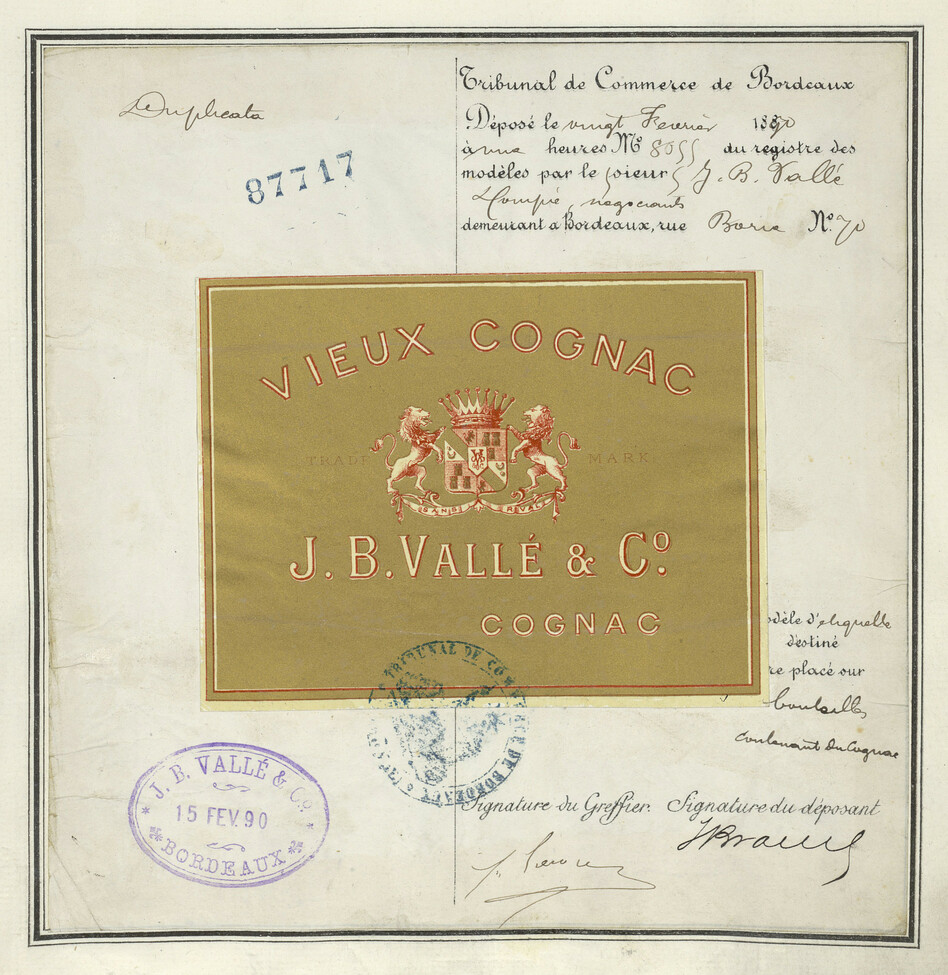 Duplicata
87717
Tribunal de Commerce de Bordeaux
Déposé le vingt Fevrier 1890
à une heures No 8055 du registre des
modèles par le sieurs J. B. Vallé
& Compie, négociants
demeurant a Bordeaux, rue Borie No. 70
VIEUX COGNAC
TRADE MARK
SANS RIVAL
J. B. VALLÉ & Co.
COGNAC
dèle d'étiquette
destiné
re placé sur
bouteilles
contenant du Cognac
TRIBUNAL DE COMMERCE DE BORDEAUX
J. B. VALLÉ & Co.
15 FEV. 90
BORDEAUX
Signature du Greffier. Signature du déposant